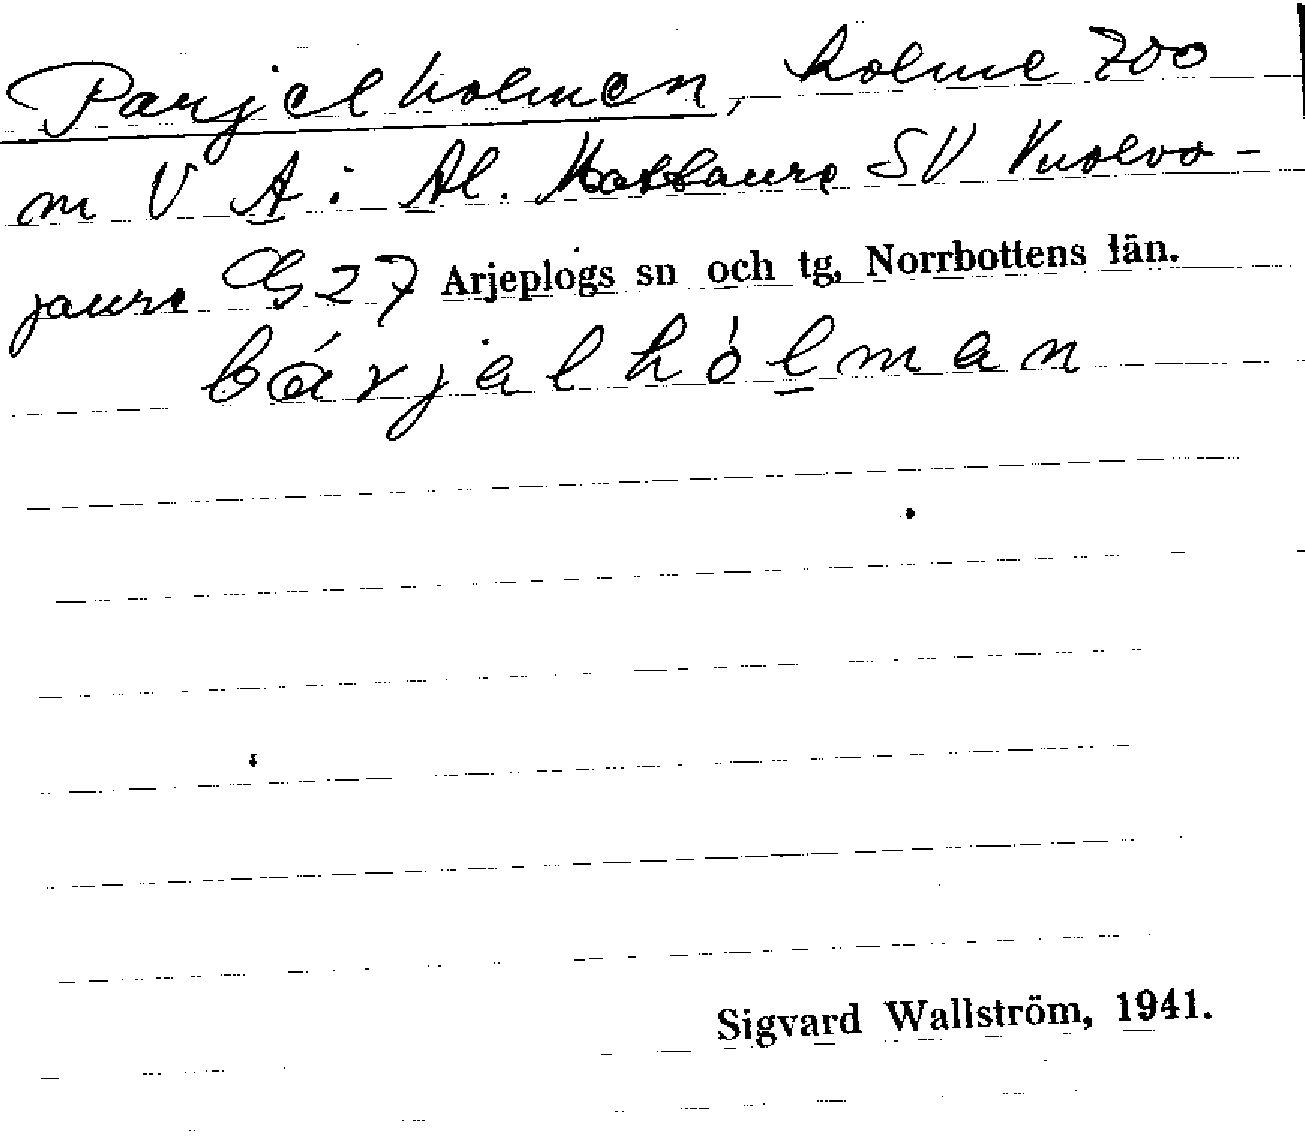 Parjelholmen, holme 700
m V A i Al. SV Vuolvo-
jaure 27 Arjeplogs sn och tg, Norrbottens län.
bárjalhólman
Sigvard Wallström, 1941.